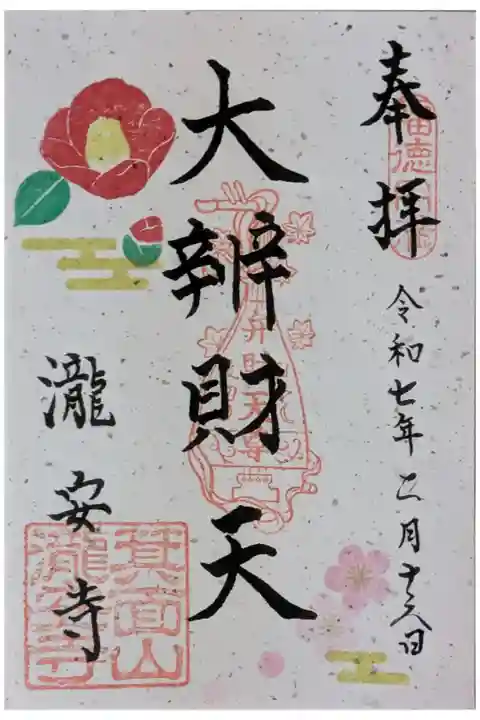 奉拝
令和七年二月十六日
大辨財天
瀧安寺
箕面山
瀧安寺